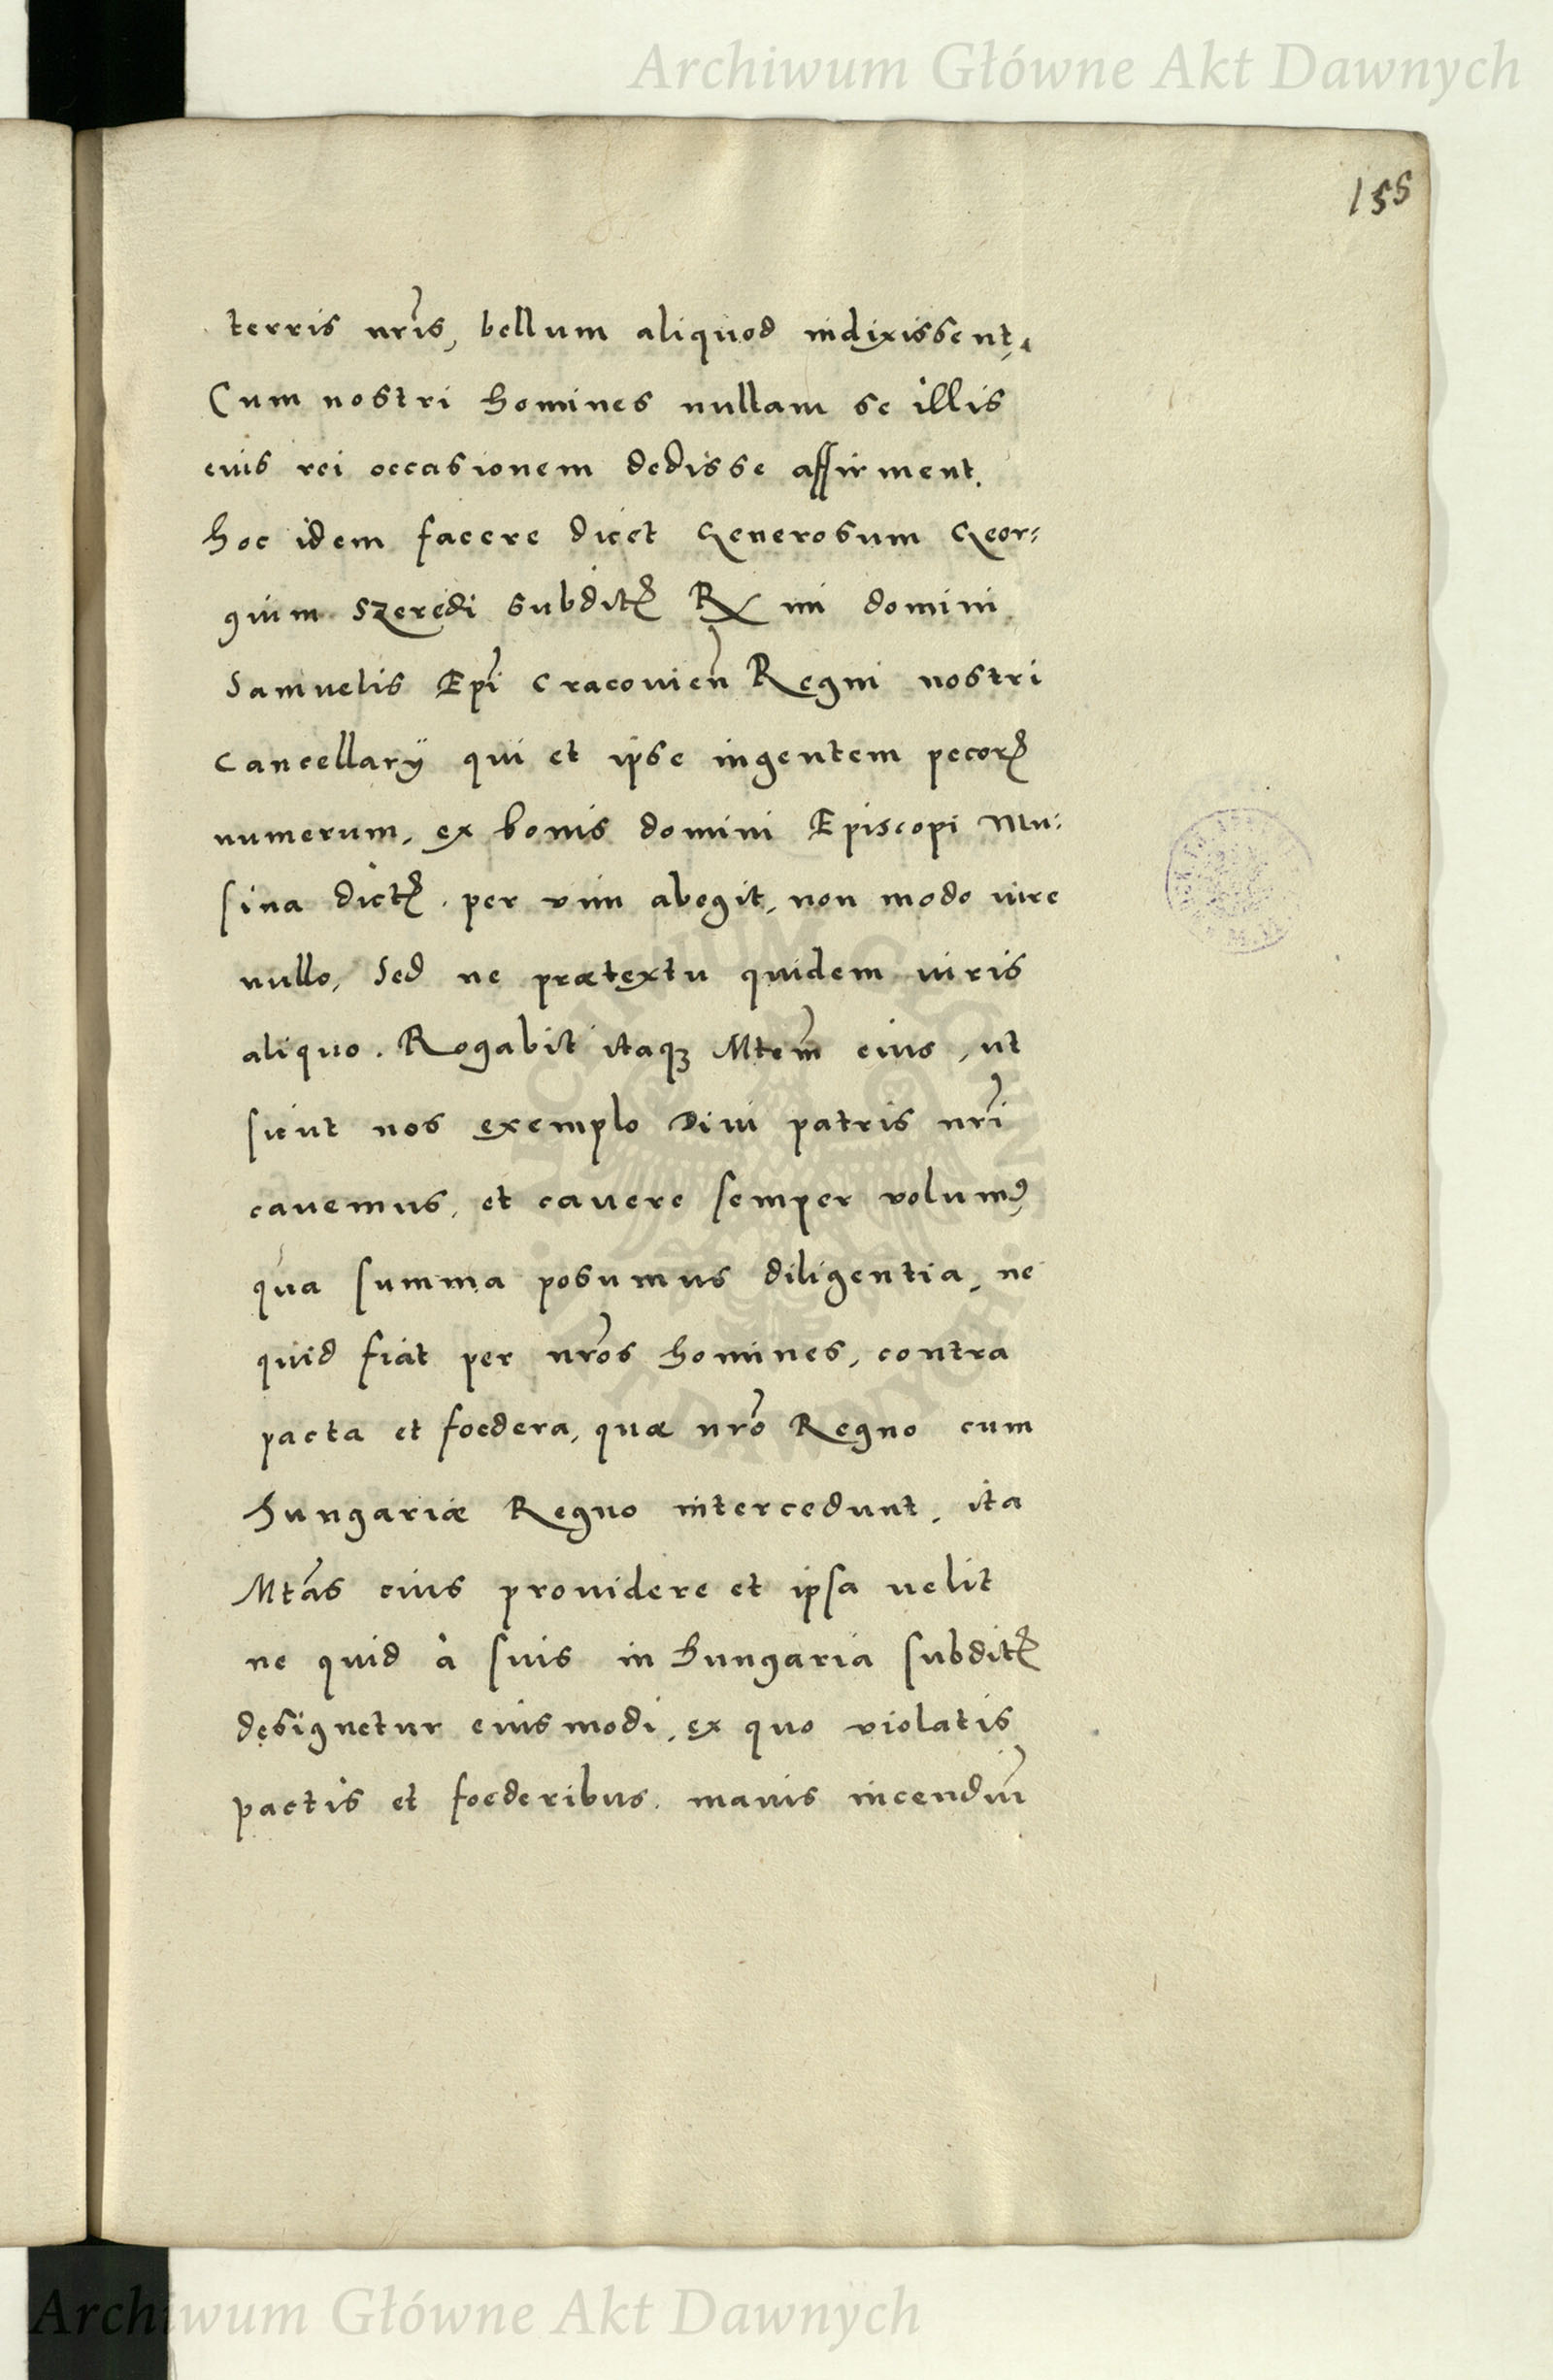 Archiwum Główne Akt Dawnych
155
terris nrĩs, bellum aliquod indixissent,
Cum nostri homines nullam se illis
euis rei occasionem dedisse affirment.
hoc idem facere dicet Generosum Geor:
gium Szeredi subditꝭ R mi domini
Samuelis Epĩ Cracouieñ Regni nostri
Cancellarÿ qui et ipse ingentem pecorꝭ
numerum, ex bonis domini Episcopi Mu:
sina dictꝭ. per vim abegit, non modo iure
nullo, Sed ne prætextu quidem iuris
aliquo. Rogabit itaqꝫ Mtem̃ eius, ut
sicut nos exemplo Diui patris nrĩ
cauemus, et cauere semper volumꝰ
qua summa posumus diligentia, ne
quid fiat per nrõs homines, contra
pacta et foedera, quæ nrõ Regno cum
Hungariæ Regno intercedunt, ita
Mtãs eius prouidere et ipsa uelit
ne quid à suis in Hungaria subditꝭ
designetur eiusmodi, ex quo violatis
pactis et foederibus. maius incendiũ
Archiwum Główne Akt Dawnych